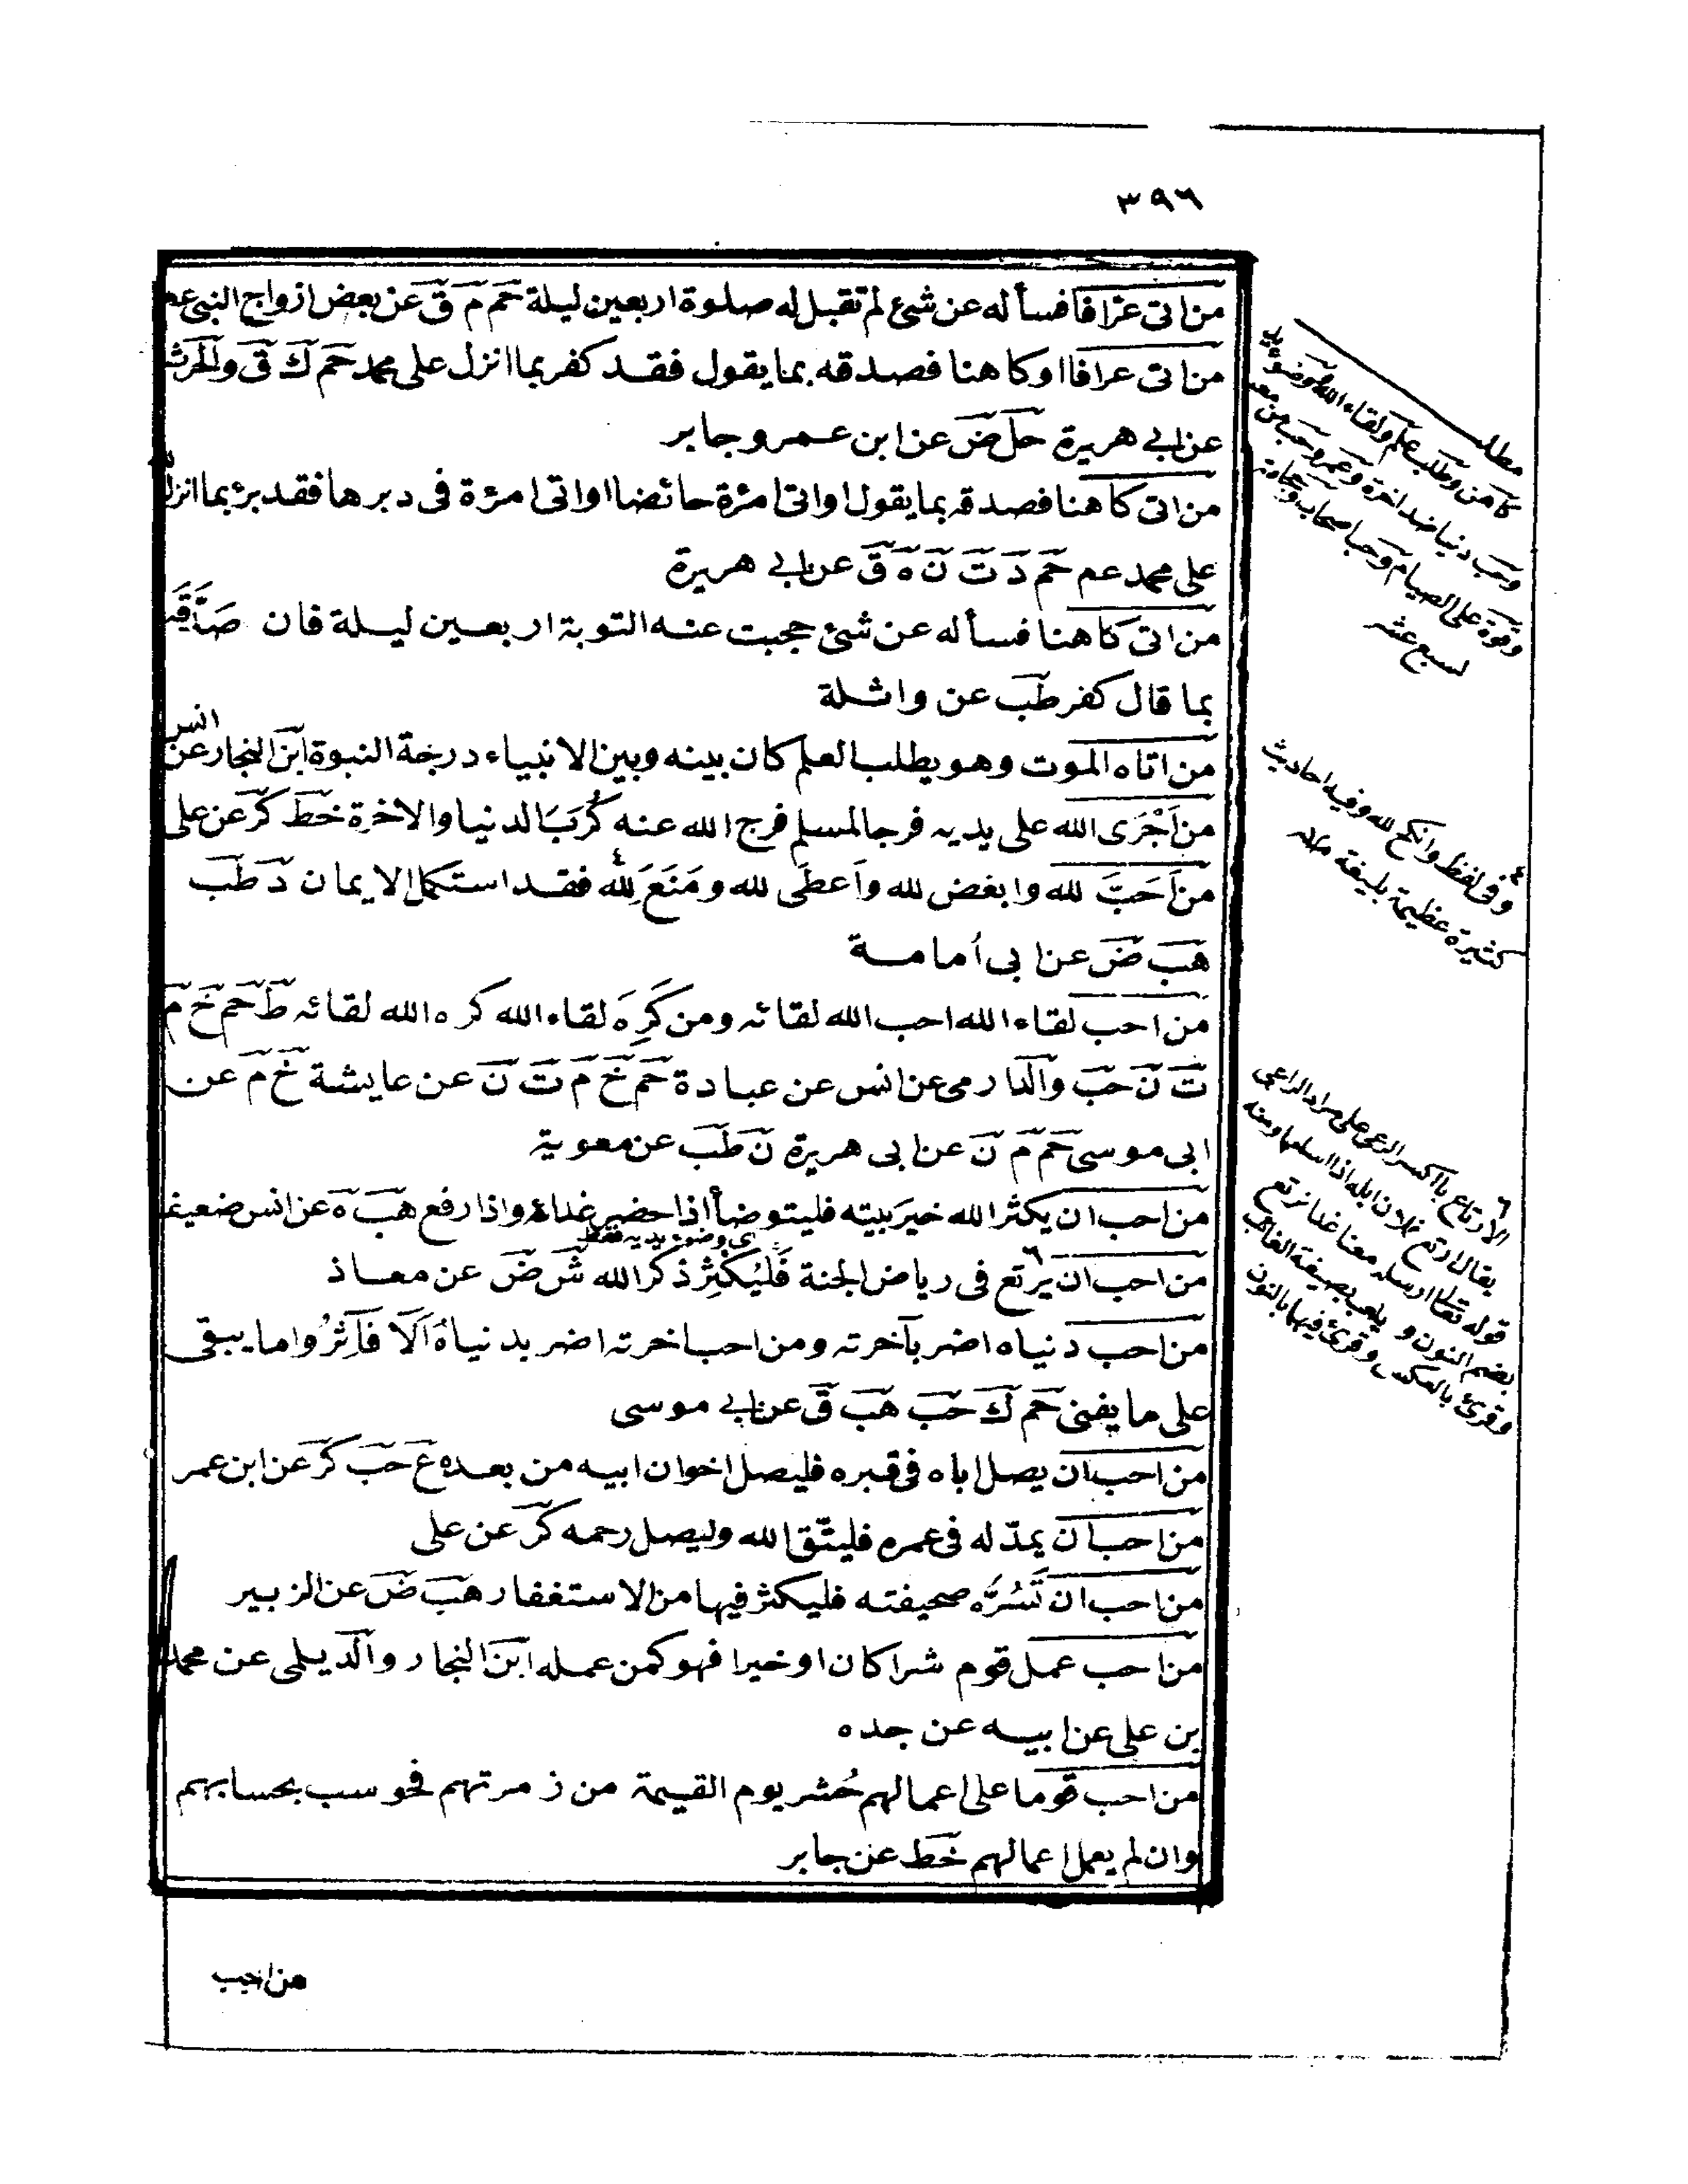 ٣٩٦
من اتى عرّافا فسأله عن شئ لم تقبل له صلوة اربعين ليلة حم م ق عن بعض ازواج النبى عم
من اتى عرافا اوكاهنا فصدقه بما يقول فقد كفر بما انزل على محمد حم ك ق والحرث
عن ابى هريرة حل ض عن ابن عمر وجابر
من اتى كاهنا فصدقه بما يقول او اتى امرئة حائضا او اتى امرئة فى دبرها فقد برئ بما انزل
على محمد عم حم د ت ن ه ق عن ابى هريرة
من اتى كاهنا فسأله عن شئ حجبت عنه التوبة اربعين ليلة فان صدّقه
بما قال كفر طب عن واثلة
من اتاه الموت وهو يطلب العلم كان بينه وبين الانبياء درجة النبوة ابن النجار عن انس
من اَجْرَى الله على يديه فرجا لمسلم فرج الله عنه كُرَبَ الدنيا والاخرة خط كر عن على
من اَحَبَّ لله وابغض لله واَعطَى لله ومَنَعَ لِلّه ٤ فقد استكمل الايمان د طب
هب ض عن ابى اُمامة
من احب لقاء الله احب الله لقائه ومن كَرِهَ لقاء الله كره الله لقائه ط حم خ م
ت ن حب والدارمى عن انس عن عبادة حم خ م ت ن عن عايشة خ م عن
ابى موسى حم م ن عن ابى هريرة ن طب عن معوية
من احب ان يكثر الله خير بيته فليتوضأ اذا حضر غداؤه واذا رفع هب ه عن انس ضعيف
اى وضوء يديه فقط
من احب ان يرتع ٦ فى رياض الجنة فَليُكْثِرْ ذكر الله ش ض عن معاذ
من احب دنياه اضر بآخرته ومن احب اخرته اضر بدنياهُ اَلَا فَآثِرُوا ما يبقى
على ما يفنى حم ك حب هب ق عن ابى موسى
من احب ان يصل اباه فى قبره فليصل اخوان ابيه من بعده ع حب كر عن ابن عمر
من احب ان يمدّ له فى عمره فليتّق الله وليصل رحمه كر عن على
من احب ان تَسُرَّه صحيفته فليكثر فيها من الاستغفار هب ض عن الزبير
من احب عمل قوم شرا كان او خيرا فهو كمن عمله ابن النجار والديلمى عن محمد
بن على عن ابيه عن جده
من احب قوما على اعمالهم حُشر يوم القيمة من زمرتهم فحوسب بحسابهم
وان لم يعمل اعمالهم خط عن جابر
من احب
مطلب
كاهن وطلب علم ولقاء الله
وحب دنيا ضد اخرة
وقوة على الصيام وحب اصحاب
لسبع عشر
٤ وفى لفظ وانكح لله وفيه احاديث
كثيرة عظيمة بليغة
٦ الارتاع باكسر الرعى على مراد الراعى
يقال ارتع فلان ابله اذا اسامها ومنه
قوله تعالى ارسله معنا غدا نرتع
بضم النون و يلعب بصيغة الغائب
وقرئ بالعكس وقرئ فيهما بالنون